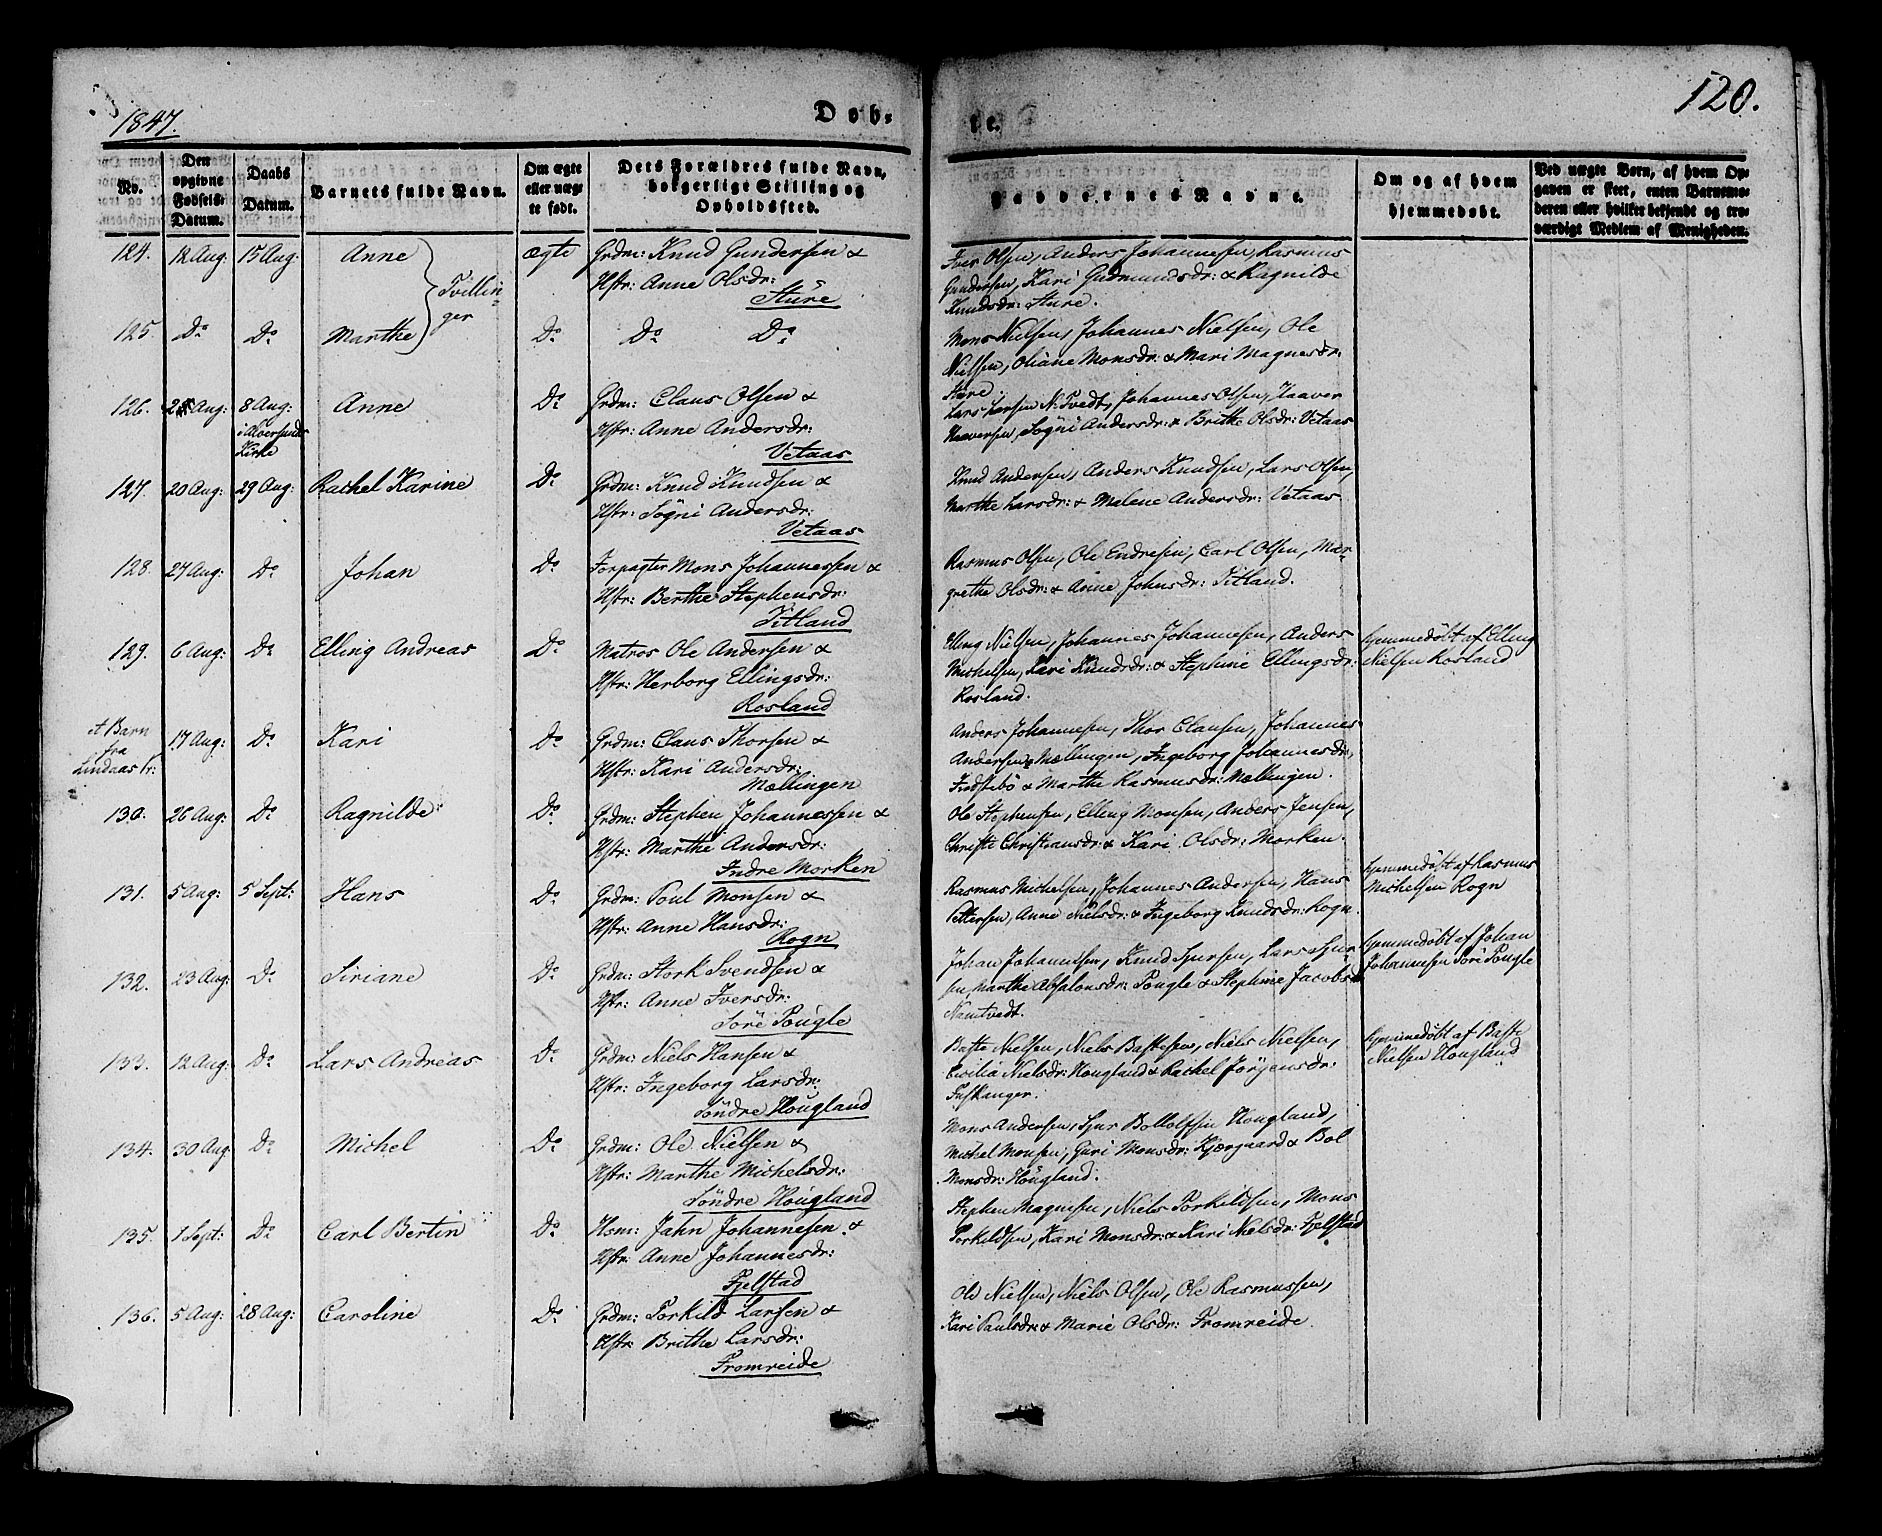 1847.
Døb-
te.
120.
No.
Den opgivne Fødsels-Datum.
Daabs Datum.
Barnets fulde Navn.
Om ægte eller uægte født.
Dets Forældres fulde Navn, borgerligt Stilling og Opholdssted.
Faddernes Navne.
Om og af hvem hjemmedøbt.
Ved uægte Børn, af hvem Opgaven er skeet, enten Barnemoderen eller hvilket bekjendt og troværdigt Medlem af Menigheden.
124. 12 Aug: 15 Aug: Anne Tvillin- ægte Grdm: Knud Gundersen &
Hstr: Anne Olsdr:
Sture
Iver Olsen, Anders Johannesen, Rasmus
Gundersen, Kari Gudmundsdr: & Ragnilde
Knudsdr: Sture.
ger
125. Do Do Marthe Do Do Do
Mons Nielsen, Johannes Nielsen, Ole
Nielsen, Oliane Monsdr: & Mari Magnesdr:
Sture
126. Aug: 8 Aug: Anne Do Grdm: Claus Olsen &
i Alversunds
Kirke
Hstr: Anne Andersdr:
Vetaas
Lars Larsen N: Tvedt, Johannes Olsen, Haaver
Haaversen, Sögni Andersdr: & Brithe Olsdr: Vetaas
127. 20 Aug: 29 Aug: Rachel Karine Do Grdm: Knud Knudsen &
Hstr: Sögni Andersdr:
Vetaas
Knud Andersen, Anders Knudsen, Lars Olsen,
Marthe Larsdr: & Malene Andersdr: Vetaas
128. 27 Aug: Do Johan Do Forpagter Mons Johannessen &
Hstr: Berthe Stephensdr:
Titland
Rasmus Olsen, Ole Endresen, Carl Olsen, Mar-
grethe Olsdr: & Anne Johnsdr: Titland.
129. 6 Aug: Do Elling Andreas Do Matros Ole Andersen &
Hstr: Herborg Ellingsdr:
Rosland
Elling Nielsen, Johannes Johannesen, Anders
Michelsen, Kari Knudsdr: & Stephine Ellingsdr:
Rosland.
hjemmedöbt af Elling
Nielsen Rosland
et Barn
fra
Lindaas Pr:
17 Aug: Do Kari Do Grdm: Claus Thorsen &
Hstr: Kari Andersdr:
Mællingen
Anders Johannesen, Thor Clausen, Johannes
Andersen Mællingen, Ingeborg Johannesdr:
Fredsebö & Marthe Rasmusdr: Mællingen.
130. 26 Aug: Do Ragnilde Do Grdm: Stephen Johannessen &
Hstr: Marthe Andersdr:
Indre Morken
Ole Stephensen, Elling Monsen, Anders Jensen,
Christi Christiansdr: & Kari Olsdr: Morken.
131. 5 Aug: 5 Sept: Hans Do Grdm: Poul Monsen &
Hstr: Anne Hansdr:
Rogn
Rasmus Michelsen, Johannes Andersen, Hans
Pettersen, Anne Nielsdr: & Ingeborg Knudsdr: Rogn.
hjemmedöbt af Rasmus
Michelsen Rogn
132. 23 Aug: Do Siriane Do Grdm: Stork Svendsen &
Hstr: Anne Iversdr:
Söre Tougle
Johan Johannesen, Knud Sjursen, Lars Sjur-
sen, Marthe Absalonsdr: Tougle & Stephine Jacobsdr
Namtvedt.
hjemmedöbt af Johan
Johannesen Söre Tougle
133. 12 Aug: Do Lars Andreas Do Grdm: Niels Hansen &
Hstr: Ingeborg Larsdr:
Söndre Hougland
Baste Nielsen, Niels Bastesen, Niels Nielsen,
Cecilia Nielsdr: Hougland & Rachel Jörgensdr:
Fuskanger.
hjemmedöbt af Baste
Nielsen Hougland
134. 30 Aug: Do Michel Do Grdm: Ole Nielsen &
Hstr: Marthe Michelsdr:
Söndre Hougland
Mons Andersen, Sjur Bottolfsen Hougland,
Michel Monsen, Guri Monsdr: Kjærgaard & Bol
Monsdr: Hougland.
135. 1 Sept: Do Carl Bertin Do Hsm: Jahn Johannesen &
Hstr: Anne Johannesdr:
Fjelstad
Stephen Magnesen, Niels Torkildsen, Mons
Torkildsen, Kari Monsdr: & Kari Nielsdr: Fjelstad
136. 5 Aug: 28 Aug: Caroline Do Grdm: Torkild Larsen &
Hstr: Brithe Larsdr:
Fromreide
Ole Nielsen, Niels Olsen, Ole Rasmussen,
Kari Paulsdr: & Marie Olsdr: Fromreide.